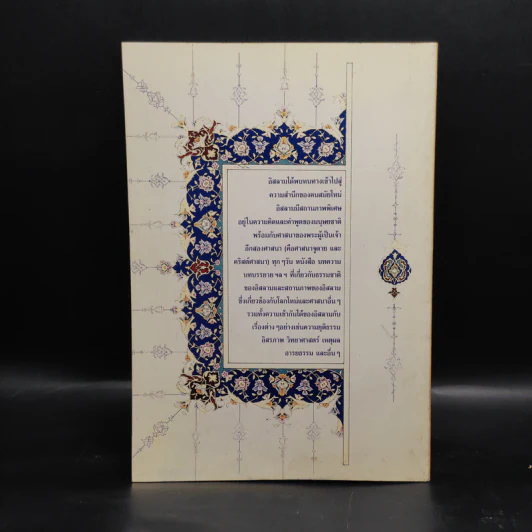 อิสลามได้พบหนทางเข้าไปสู่
ความสำนึกของคนสมัยใหม่
อิสลามมีสถานภาพพิเศษ
อยู่ในความคิดและคำพูดของมนุษยชาติ
พร้อมกับศาสนาของพระผู้เป็นเจ้า
อีกสองศาสนา (คือศาสนายูดาย และ
คริสต์ศาสนา) ทุก ๆ วัน หนังสือ บทความ
บทบรรยาย ฯลฯ ที่เกี่ยวกับธรรมชาติ
ของอิสลามและสถานภาพของอิสลาม
ซึ่งเกี่ยวข้องกับโลกใหม่และศาสนาอื่น ๆ
รวมทั้งความเข้ากันได้ของอิสลามกับ
เรื่องต่าง ๆ อย่างเช่นความยุติธรรม
อิสรภาพ วิทยาศาสตร์ เหตุผล
อารยธรรม และอื่น ๆ